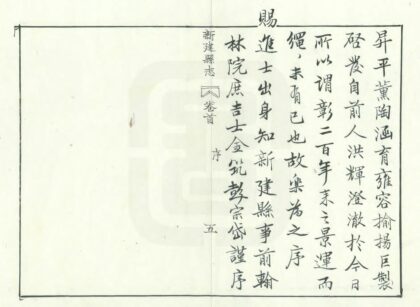 昇平薰陶涵育雍容揄揚巨製
啓發自前人洪輝澄澈於今日
所以謂彰二百年來之景運而
繩繩未有已也故樂為之序
賜
進士出身知新建縣事前翰
林院庶吉士金筑彭宗岱謹序
新建縣志 卷首 序 五